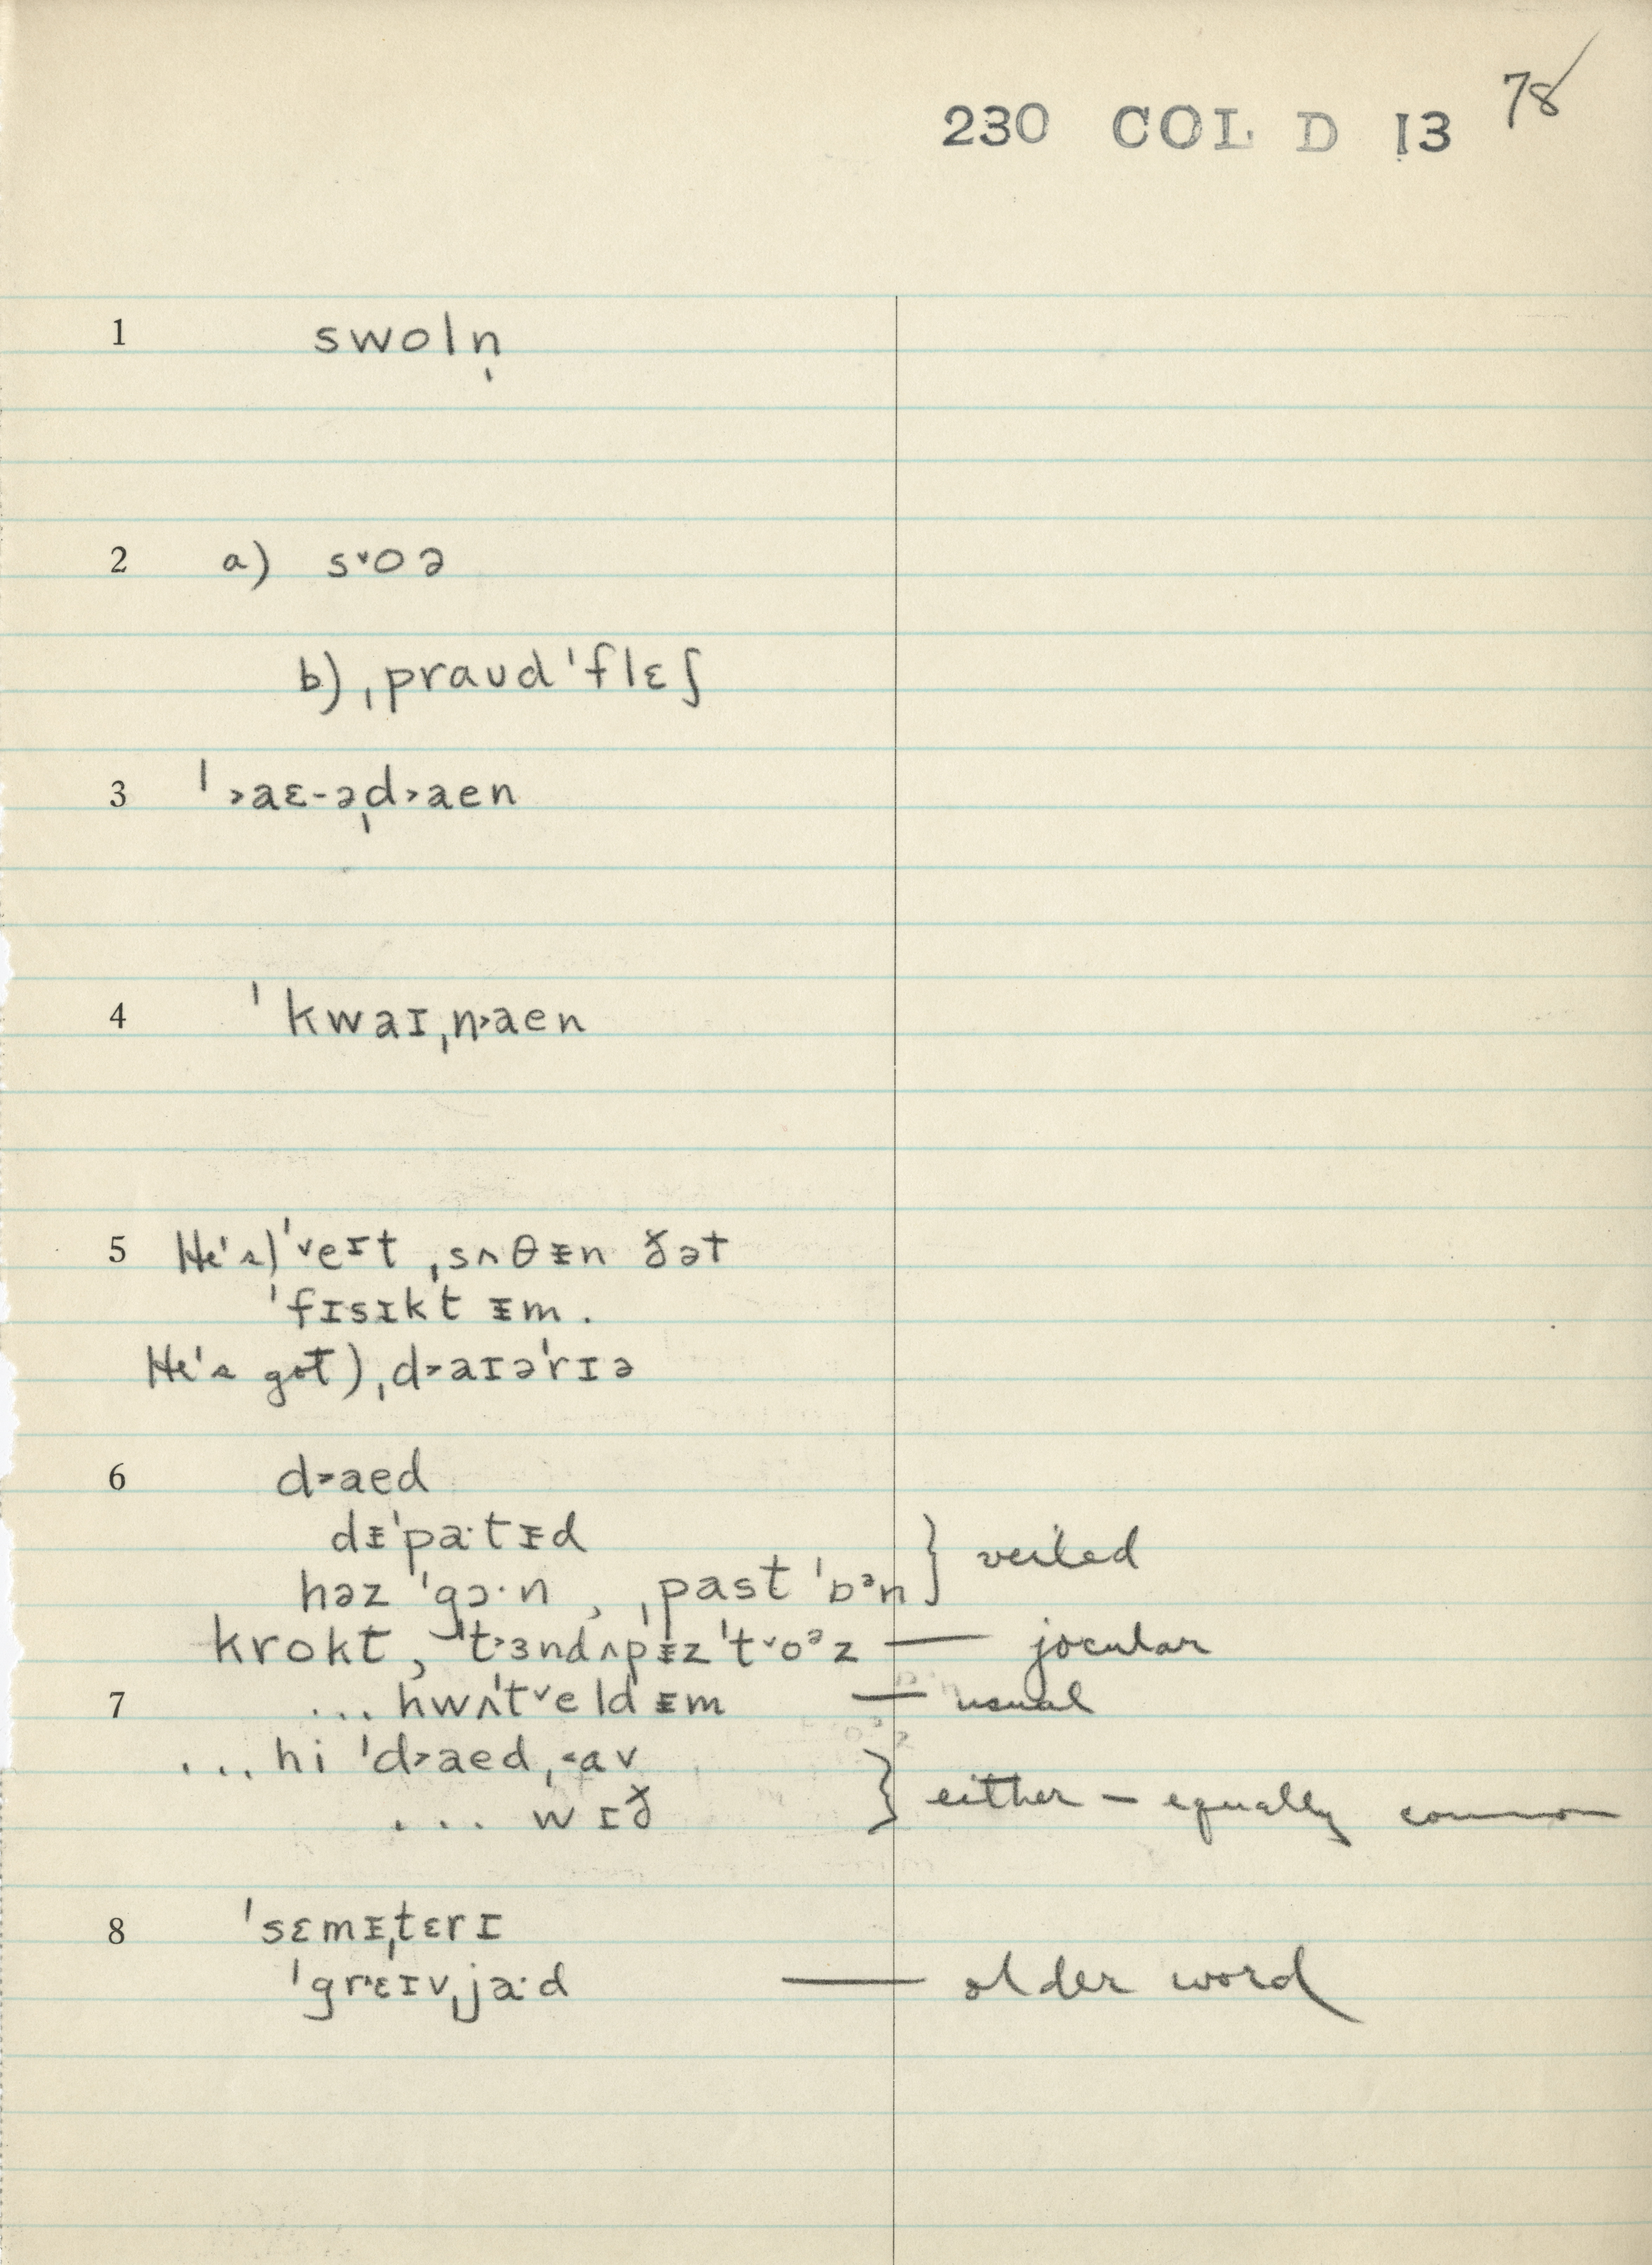 230 COL D 13 78
1 swoln̩
2 a) s˅oə
b) ˌpraʊdˈflɛʃ
3 ˈ˃aɛ-əˌd˃aen
4 ˈkwaɪˌn˃aen
5 He's) ˈ˅eɪt ˌsʌθᵻn ðət
ˈfɪsɪkt ᵻm.
He's got) ˌd˃aɪəˈrɪə
6 d˃aed
dᵻˈpa·tᵻd
həz ˈgɔ·n , ˌpast ˈbᵊn } veiled
krokt, ˈt˃ɜndʌpᵻz ˈt˅oᵊz — jocular
7 ... hwʌˈt˅eldᵻm — usual
... hi ˈd˃aed, ˂av
... wɪð } either – equally common
8 ˈsɛmᵻˌtɛrɪ
ˈgr˂ɛɪvˌja·d — older word